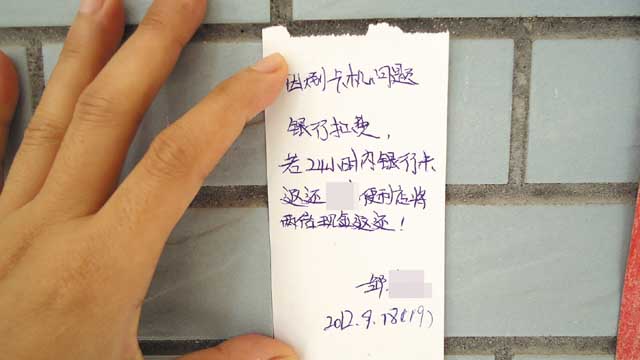 因刷卡机问题
银行扣费,
若24小时内银行卡
返还 便利店将
两倍现金返还!
2012.9.18(19)